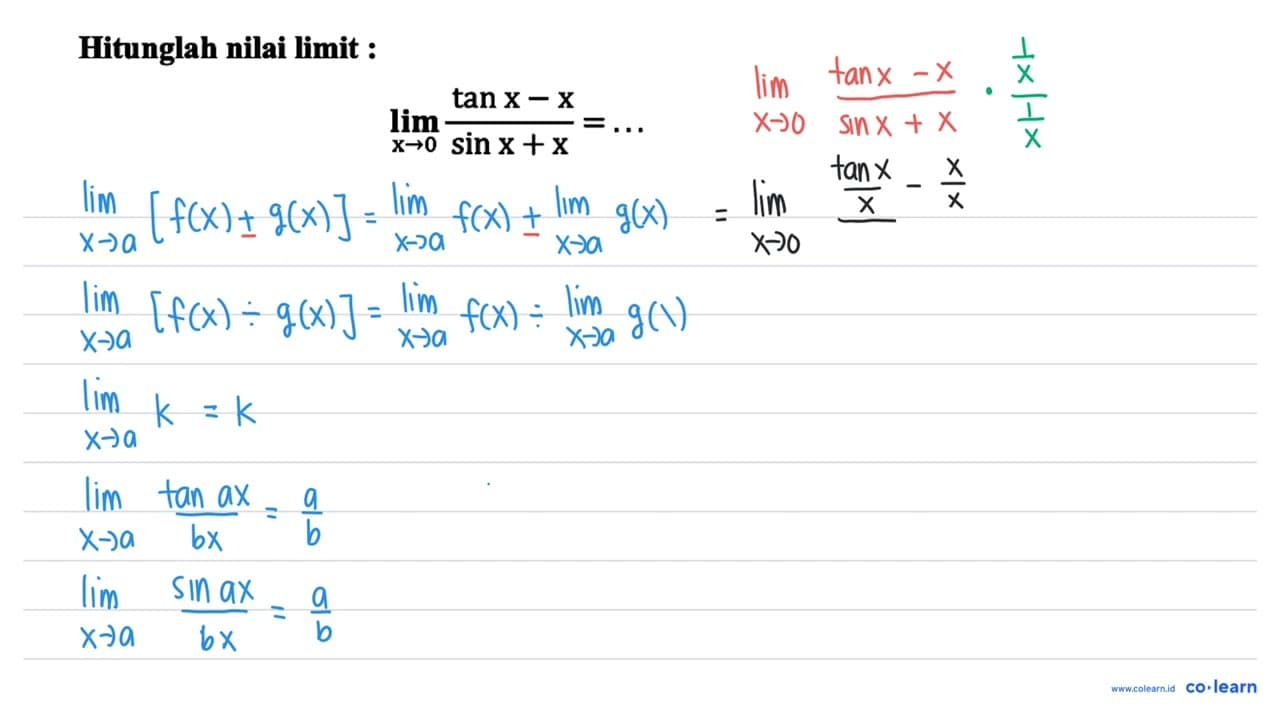 Hitunglah nilai limit :
lim x→0 (tan x − x)/(sin x + x) = ...
lim x→0 (tan x − x)/(sin x + x) · (1/x)/(1/x)
= lim x→0 tan x/x − x/x
lim x→a [f(x) ± g(x)] = lim x→a f(x) ± lim x→a g(x)
lim x→a [f(x) ÷ g(x)] = lim x→a f(x) ÷ lim x→a g(\)
lim x→a k = k
lim x→a tan ax/bx = a/b
lim x→a sin ax/bx = a/b
www.colearn.id co·learn